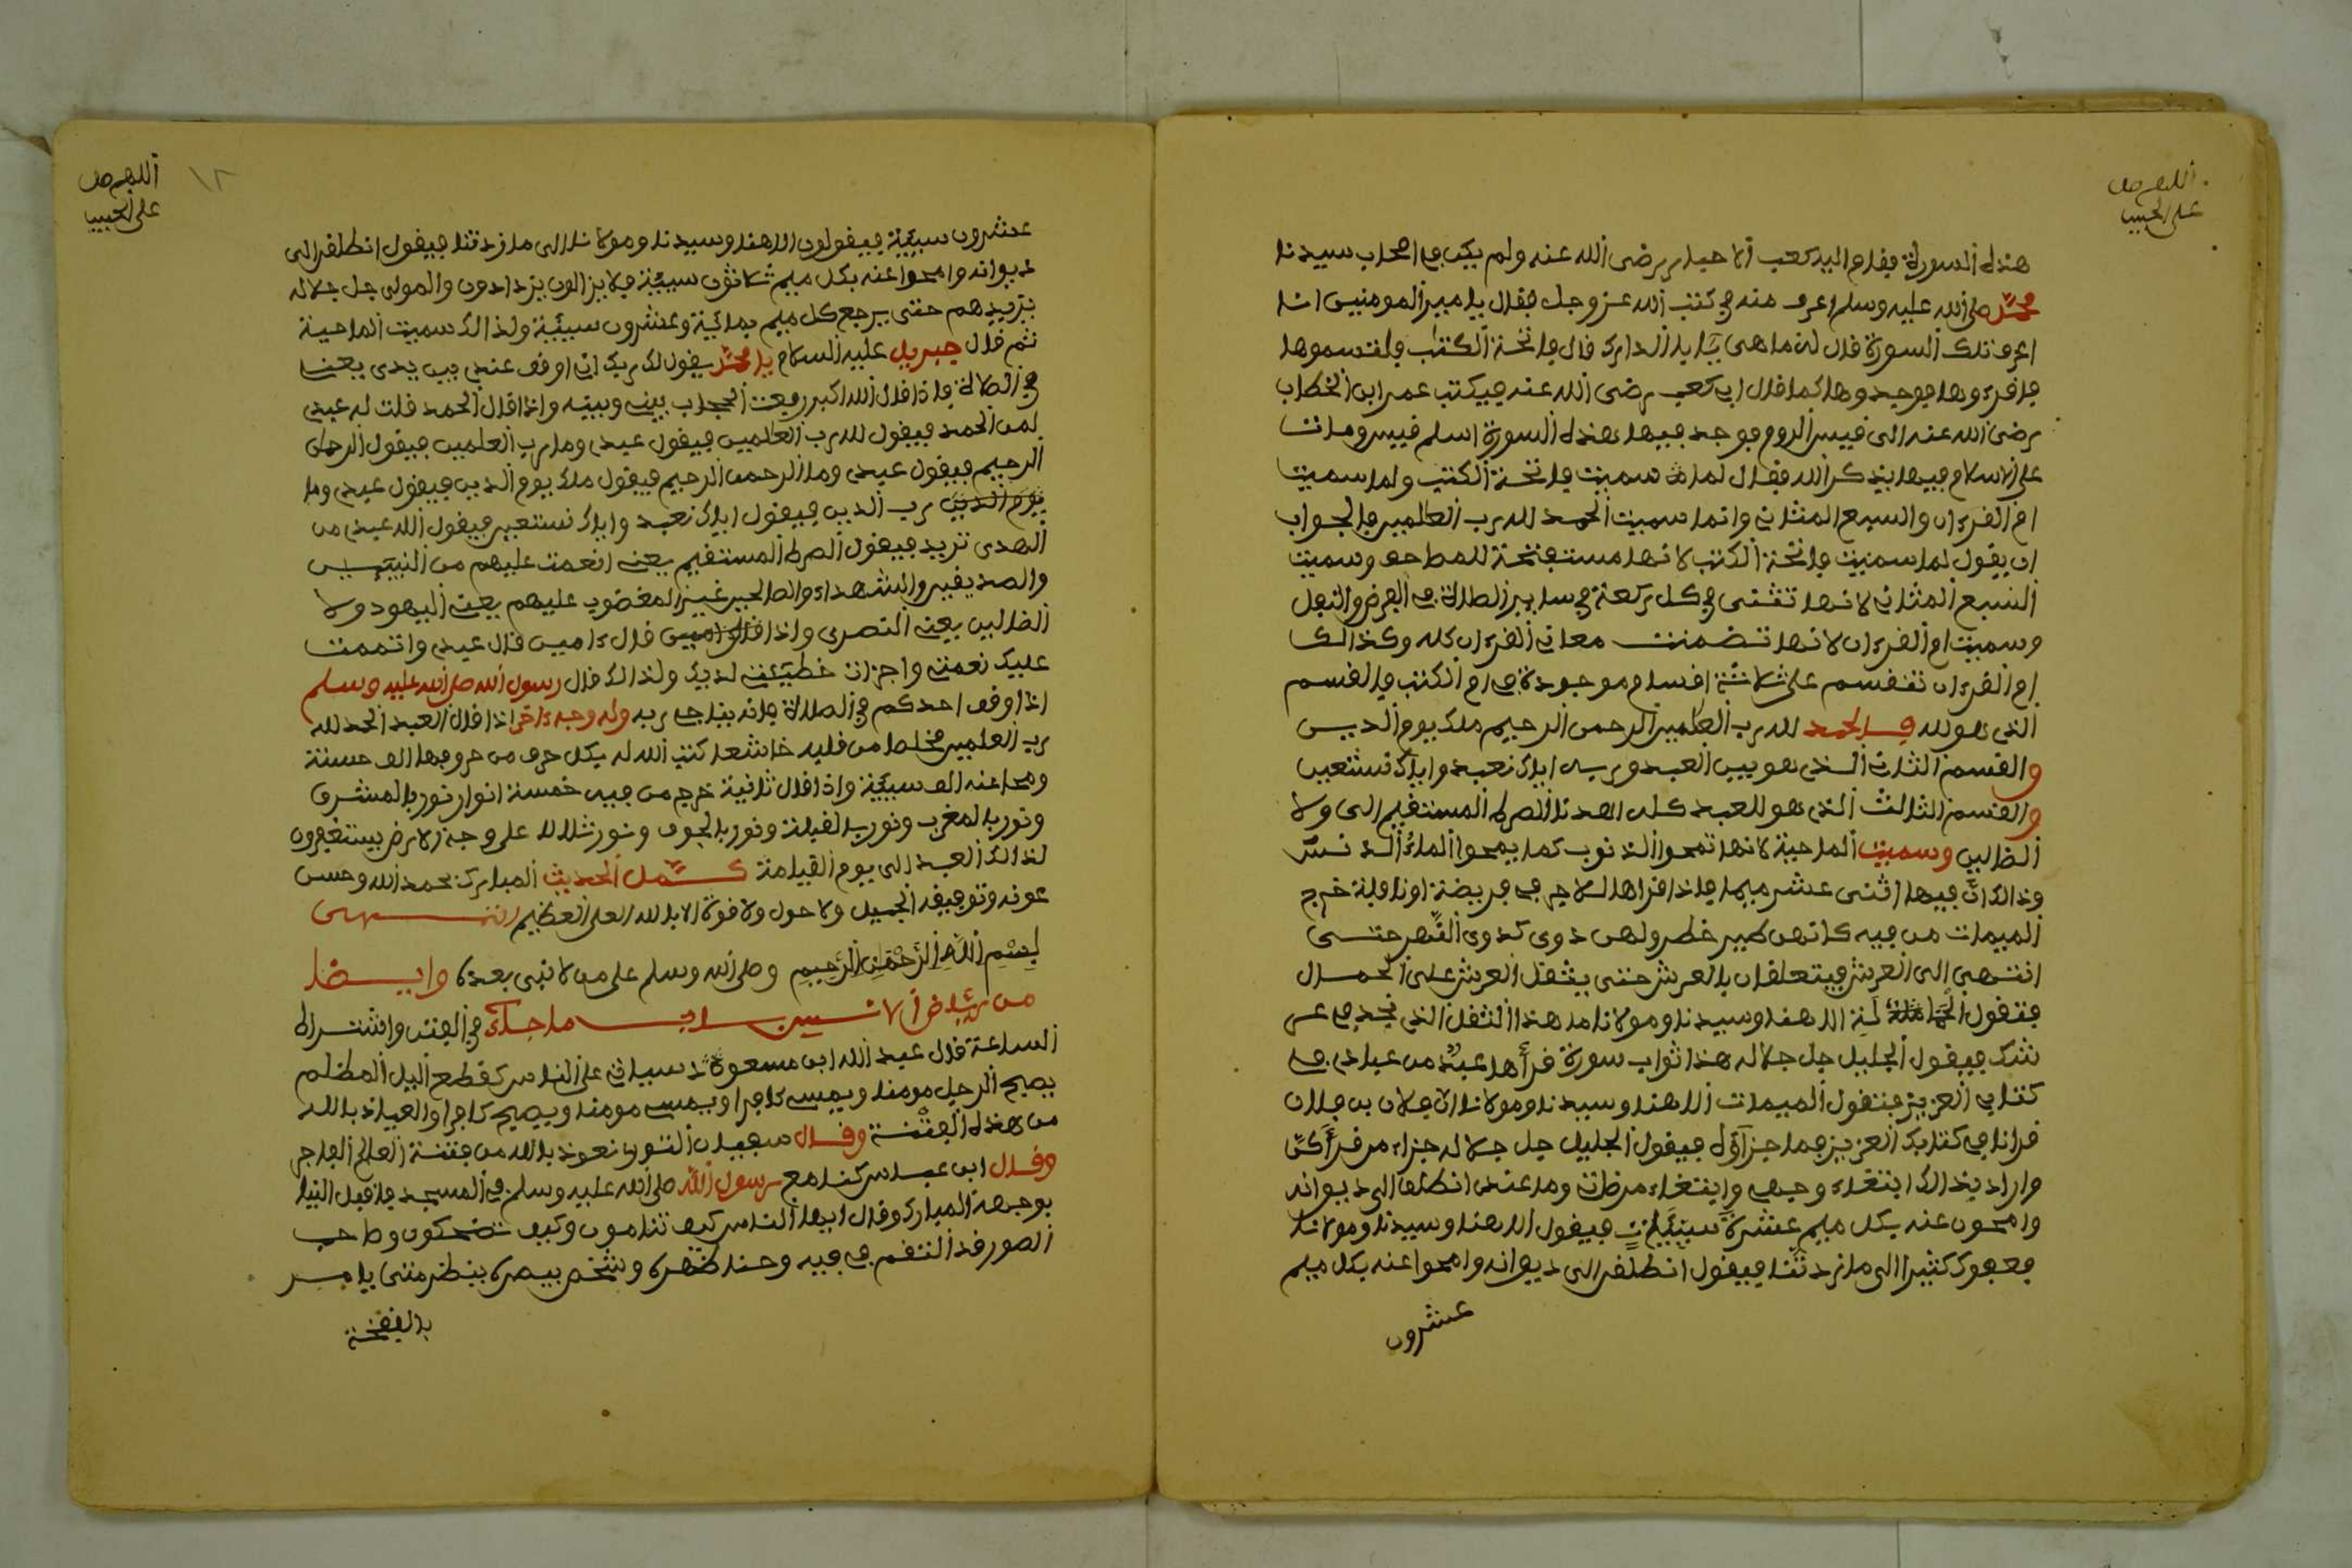 اللهم صل
على الحبيب
هذه السورة فقام اليه كعب الاحبار رضى الله عنه ولم يكن في اصحاب سيدنا
محمد صلى الله عليه وسلم اعرف منه في كتب الله عز وجل فقال يا امير المومنين انا
اعرف تلك السورة قال له ما هى قال فاتحة الكتاب فالتسموها
فاقرءوها فوجدوها كما قال ابى كعب رضى الله عنه فكتب عمر ابن الخطاب
رضى الله عنه الى قيصر الروم فوجد فيها هذه السورة اسلم قيصر ومات
على الاسلام فيها بذكر الله فقال لماذا سميت فاتحة الكتب ولما سميت
ام القرءان والسبع المثانى وانما سميت الحمد لله رب العالمين فالجواب
ان يقول لما سميت فاتحة الكتب لانها مستفتحة للمصاحف وسميت
السبع المثانى لانها تثنى في كل ركعة في ساير الصلاة في الفرض والنفل
وسميت ام القرءان لانها تضمنت معانى القرءان كله وكذالك
ام القرءان تنقسم على ثلاثة اقسام موجودة في ام الكتب فالقسم
الذى هو لله قل الحمد لله رب العالمين الرحمن الرحيم ملك يوم الدين
والقسم الثانى الذى هو بين العبد وربه اياك نعبد واياك نستعين
والقسم الثالث الذى هو للعبد كله اهدنا الصراط المستقيم الى ولا
الضالين وسميت الماحية لانها تمحوا الذنوب كما يمحوا الماء الدنس
وذالك ان فيها اثنى عشر ميما فاذا قراها في فريضة او نافلة خرج
الميمات من فيه كانهن طير خضر ولهن دوى كدوى النحل حتى
انتهى الى العرش فيتعلقان بالعرش حتى يثقل العرش على الحمال
فتقول الاهنا وسيدنا ومولانا ما هذا الثقل الذى نجد في عر
شك فيقول الجليل جل جلاله هذا ثواب سورة قرأها عبد من عبادى في
كتابى العزيز فتقول الميمات الاهنا وسيدنا ومولانا ان فلان بن فلان
قرانا في كتابك العزيز فما جزآؤه فيقول الجليل جل جلاله جزاء من قرأكن
واراد بذالك ابتغاء وجهى وابتغاء مرضاتى وما عندى انطلقا الى ديوانه
وامحون عنه بكل ميم عشرة سيئات فيقول الاهنا وسيدنا ومولانا
فعفوك كثيرا الى ما زدتنا فيقول انطلقن الى ديوانه وامحوا عنه بكل ميم
عشرون
اللهم صل
على الحبيب
١٢
عشرون سيئة فيقولون الاهنا وسيدنا ومولانا الى ما زدتنا فيقول انطلقن الى
ديوانه وامحوا عنه بكل ميم ثلاثون سيئة فلا يزالون يزدادون والمولى جل جلاله
يزيدهم حتى يرجع كل ميم بمائة وعشرون سيئة ولذالك سميت الماحية
ثم قال جبريل عليه السلام يا محمد يقول لك ربك اذا اوقف عبدى بين يدى يعنى
في الصلاة فاذا قال الله اكبر رفعت الحجاب بينى وبينه واذا قال الحمد قلت له عبدى
لمن الحمد فيقول لله رب العالمين فيقول عبدى وما رب العلمين فيقول الرحمان
الرحيم فيقول عبدى وما الرحمن الرحيم فيقول ملك يوم الدين فيقول عبدى وما
يوم الدين رب الدين فيقول اياك نعبد واياك نستعين فيقول الله عبدى من
الهدى تريد فيقول الصراط المستقيم يعنى انعمت عليهم من النبيين
والصديقين والشهداء والصالحين غير المغضوب عليهم يعنى اليهود ولا
الضالين يعنى النصرى واذا قال ءامين قال ءامين قال عبدى واتممت
عليك نعمتى واجزات خطيئتى لديك ولذالك قال رسول الله صلى الله عليه وسلم
اذا وقف احدكم في الصلاة فانه يناجى ربه وله وجه ءاخر اذا قال العبد الحمد لله
رب العلمين مخلصا من قلبه خاشعا كتب الله له بكل حرف من حروفها الف حسنة
ومحا عنه الف سيئة واذا قال ثانية خرج من فيه خمسة انوار نور بالمشرق
ونور بالمغرب ونور بالقبلة ونور بالجوف ونور على وجه الارض يستغفرون
لذالك العبد الى يوم القيامة كمل الحديث المبارك بحمد الله وحسن
عونه وتوفيقه الجميل ولا حول ولا قوة الا بالله العلى العظيم انتهى
بسم الله الرحمن الرحيم وصلى الله وسلم على من لا نبى بعده وايضا
من رياض الانس باب ما جاء في الفتن واشتراط
الساعة قال عبد الله ابن مسعود سياتى على الناس كقطع اليل المظلم
يصبح الرجل مومنا ويمسى كافرا ويمسى مومنا ويصبح كافرا والعياذ بالله
من هذه الفتنة وقال سفيان الثورى نعوذ بالله من فتنة العالم الفاجر
وقال ابن عباس كنا مع رسول الله صلى الله عليه وسلم في المسجد فاقبل الينا
بوجهه المبارك وقال ايها الناس كيف تنامون وكيف تضحكون وصاحب
الصور قد التقم في فيه وحنا ظهره وشخص ببصره ينظر متى يامر
بالنفخة